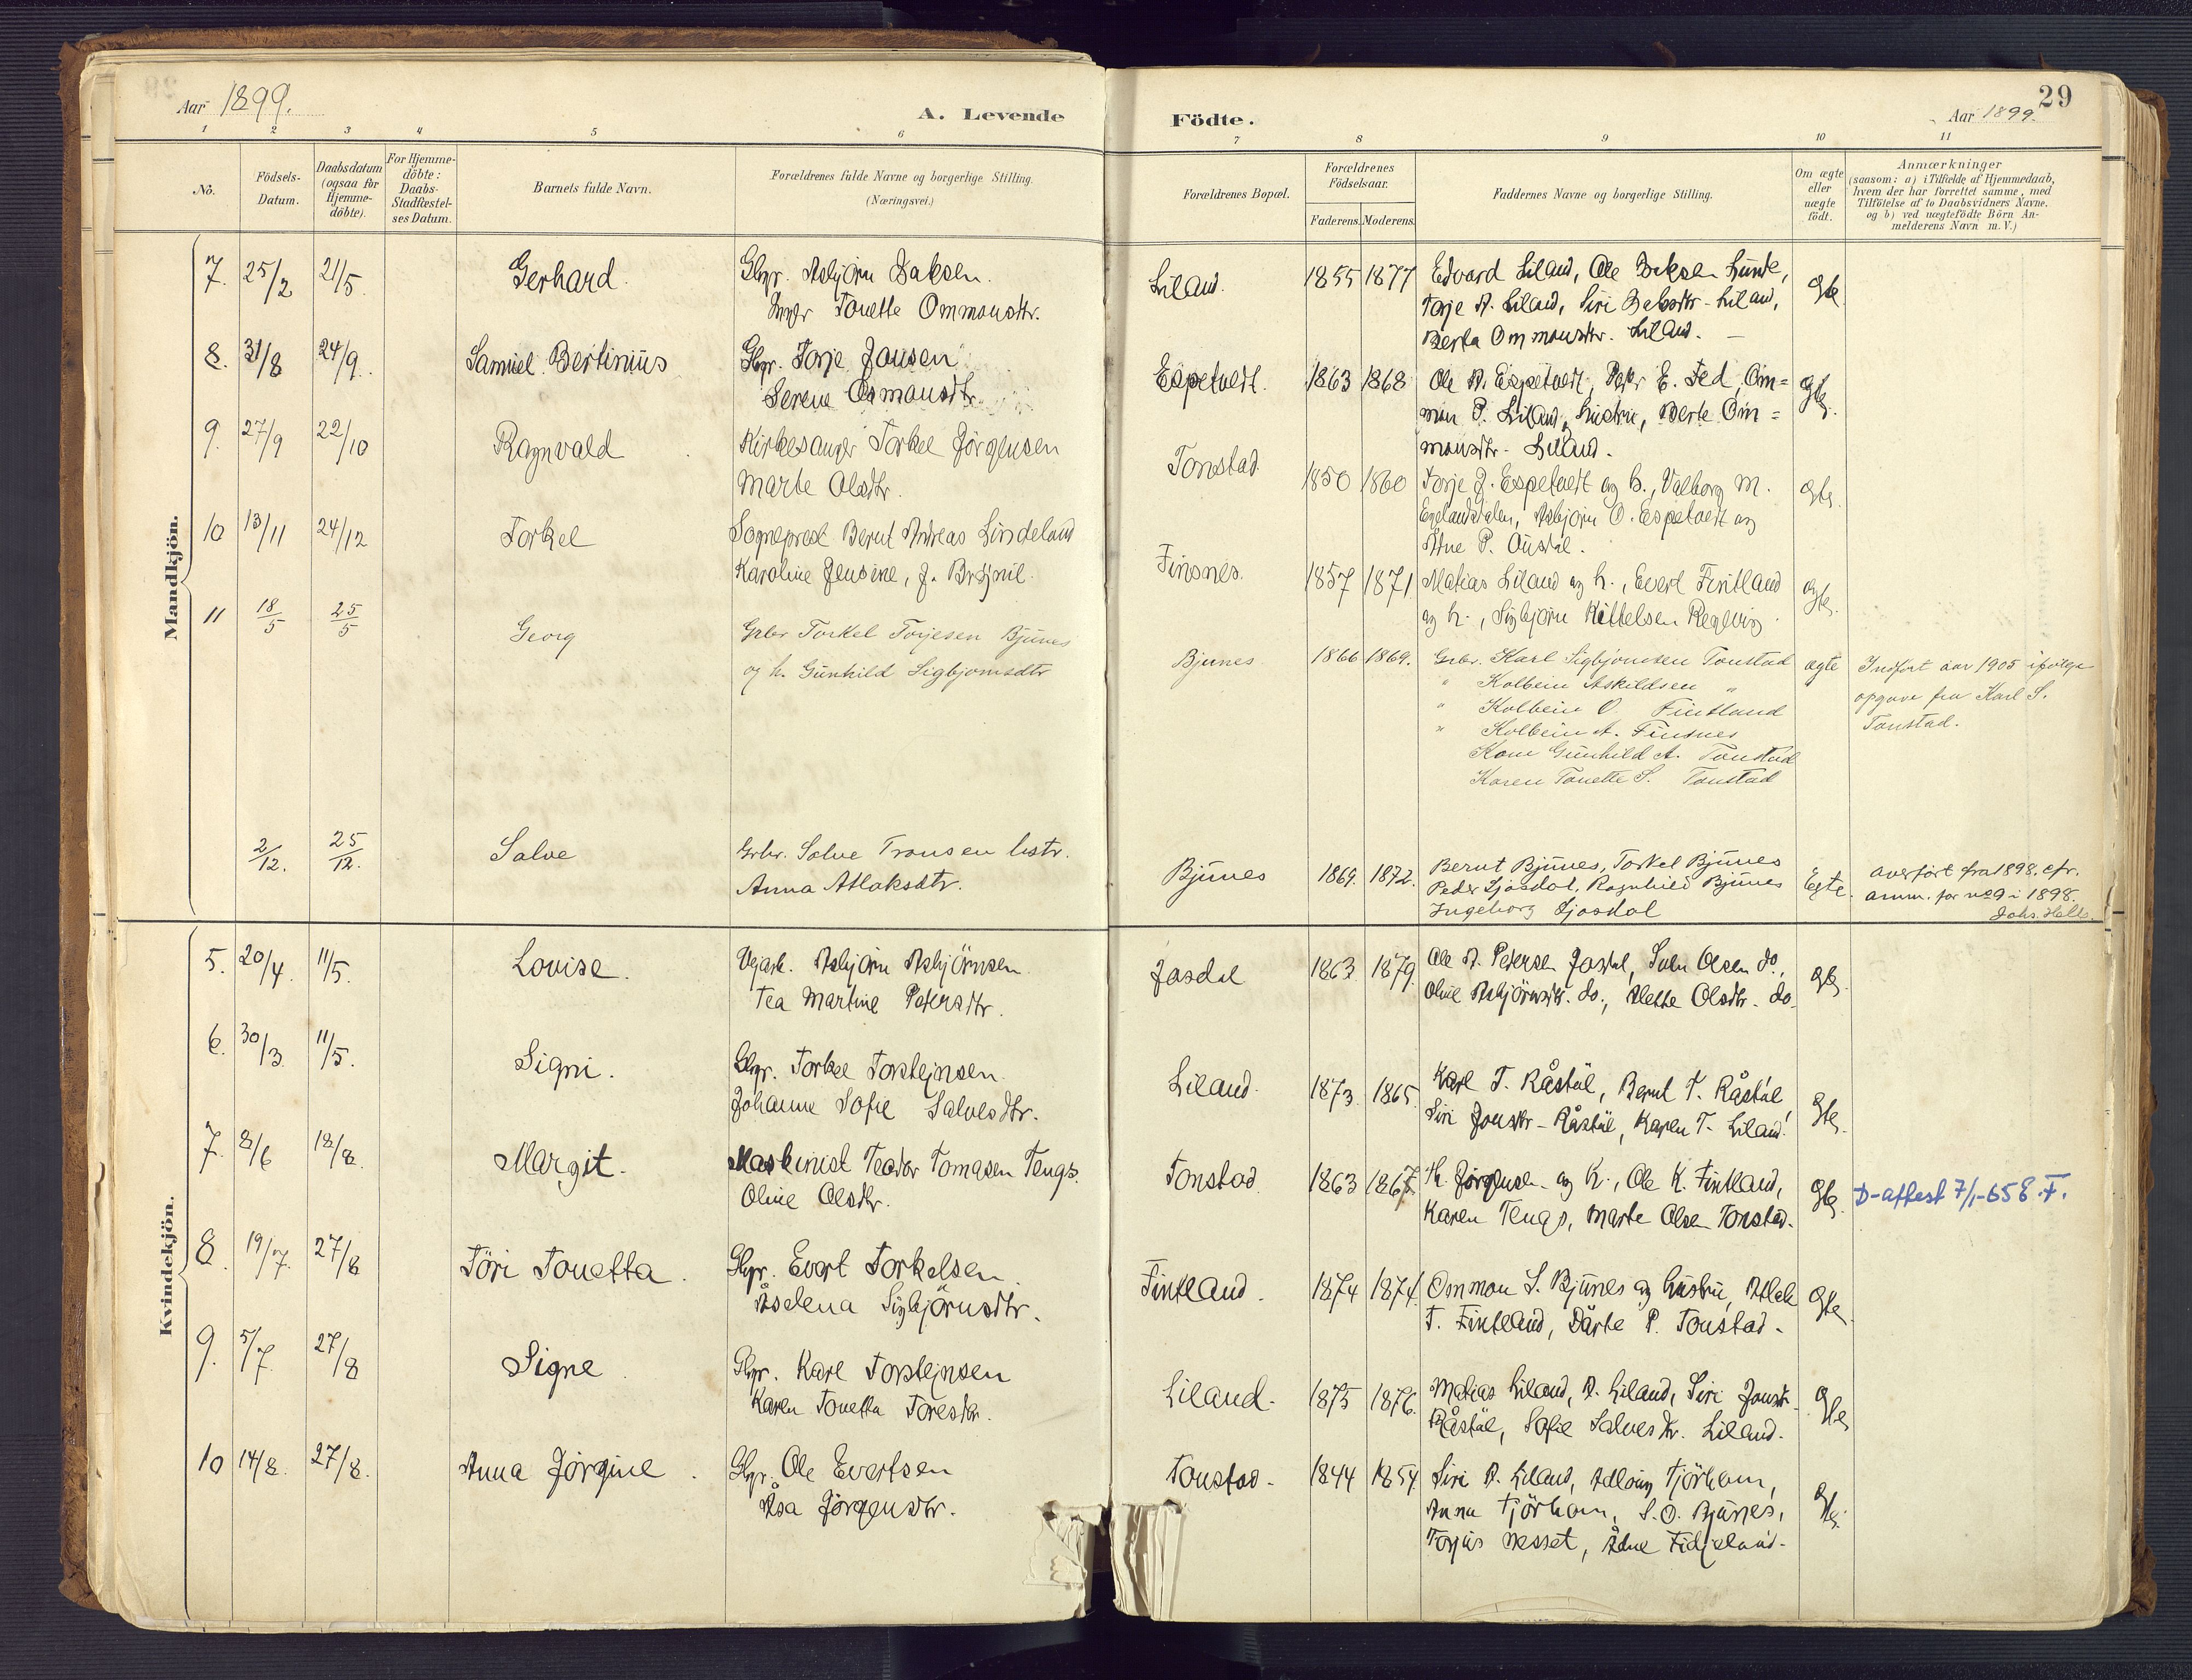 Aar 1899.
A. Levende
Födte.
Aar 1899.
29
1 2 3 4 5 6 7 8 9 10 11
No.
Födsels-
Datum.
Daabsdatum
(ogsaa for
Hjemme-
döbte).
For Hjemme-
döbte:
Daabs-
Stadfæstel-
ses Datum.
Barnets fulde Navn.
Forældrenes fulde Navne og borgerlige Stilling.
(Næringsvei.)
Forældrenes Bopæl.
Forældrenes
Födselsaar.
Faderens. Moderens.
Faddernes Navne og borgerlige Stilling.
Om ægte
eller
uægte
födt.
Anmærkninger
(saasom: a) i Tilfælde af Hjemmedaab,
hvem der har forrettet samme, med
Tilföielse af to Daabsvidners Navne.
og b) ved uægtefödte Börn An-
melderens Navn m. V.)
Mandkjön.
7. 25/2 21/5 Gerhard. Gbr. Asbjörn
Tonette Ommonsdtr.
Liland. 1855 1877 Edvard Liland, Ole
Torje A. Liland, Siri Liland,
Berta Ommonsdtr. Liland. –
8. 31/8 24/9. Samuel Bertinius Gbr. Torje Jonsen
Serene
Espetvedt. 1863 1868 Ole A. Espetvedt, E. Fed, Om=
mon P. Liland, hustru, Berte Om=
monsdtr. Liland.
9. 27/9 22/10 Ragnvald Kirkesanger Torkel Jörgensen
Marte Olsdtr.
Tonstad 1850 1860 Torje J. Espetvedt og h., Valborg M.
Asbjörn O. Espetvedt og
P.
10 13/11 24/12 Torkel Sogneprest Bernt Andreas Lindeland
Karoline Jensine, f.
Finsnes. 1857 1871 Matias Liland og h., Evert Fintland
og h., Sigbjörn Kittelsen
11 18/5 25/5 Georg Grbr Torkel Torjesen Bjunes
og h. Gunhild Sigbjornsdtr
Bjunes 1866 1869. Grbr. Karl Sigbjornsen Tonstad ægte Indfört aar 1905 ifölge
" Kolbein Askildsen " opgave fra Karl S.
" Kolbein O. Fintland Tonstad.
" Kolbein A. Finsnes
Kone Gunhild A. Tonstad
Karen Tonette S. Tonstad
2/12. 25/12. Salve Grbr. Salve Tronsen hstr.
Anna Atlaksdtr.
Bjunes 1869. 1872. Bernt Bjunes, Torkel Bjunes Egte. overfört fra 1898. cfr.
Peder Josdal, Ragnhild Bjunes anm. for no 9 i 1898.
Ingeborg Josdal
Kvindekjön.
5. 20/4 11/5. Lovise. Asbjörn Asbjörnsen.
Tea Martine Petersdtr.
Josdal 1863 1879. Ole A. Petersen Josdal, Sven Olsen do.,
Oline Asbjörnsdtr. do., Alette Olsdtr. do.
6. 30/3 11/5. Signi. Gbr. Torkel Torstejnsen.
Johanne Sofie Salvesdtr.
Liland 1873 1865 Karl T. Råstöl, Bernt T. Råstöl,
Siri Jonsdtr – Råstöl, Karen T. Liland.
7. 8/6 18/8. Margit. Maskinist Teodor Tomasen Tengs.
Oline Olsdtr.
Tonstad 1863 1867 Jörgensen og h., Ole K. Fintland,
Karen Tengs, Marte Olsen Tonstad.
D-attest 7/1-658. F.
8. 19/7. 27/8 Töri Tonetta. Gbr. Evert Torkelsen
Åselena Sigbjörnsdtr.
Fintland. 1874 1874 Ommon S. Bjunes og hustru, Atlak
T. Fintland, Dårte P. Tonstad.
9. 5/7. 27/8 Signe Gbr. Karl Torstejnsen
Karen Tonetta Toresdtr.
Liland. 1875 1876. Matias Liland, A. Liland, Siri Jonsdtr.
Råstöl, Sofie Salvesdtr. Liland.
10 14/8. 27/8. Anna Jörgine. Gbr. Ole Evertsen
Åsa Jörgensdtr.
Tonstad. 1844 1854 Siri A. Liland, Tjörhom,
Anna Tjörhom, S. O. Bjunes,
Torjus Nesset, Ådne Fidjeland.